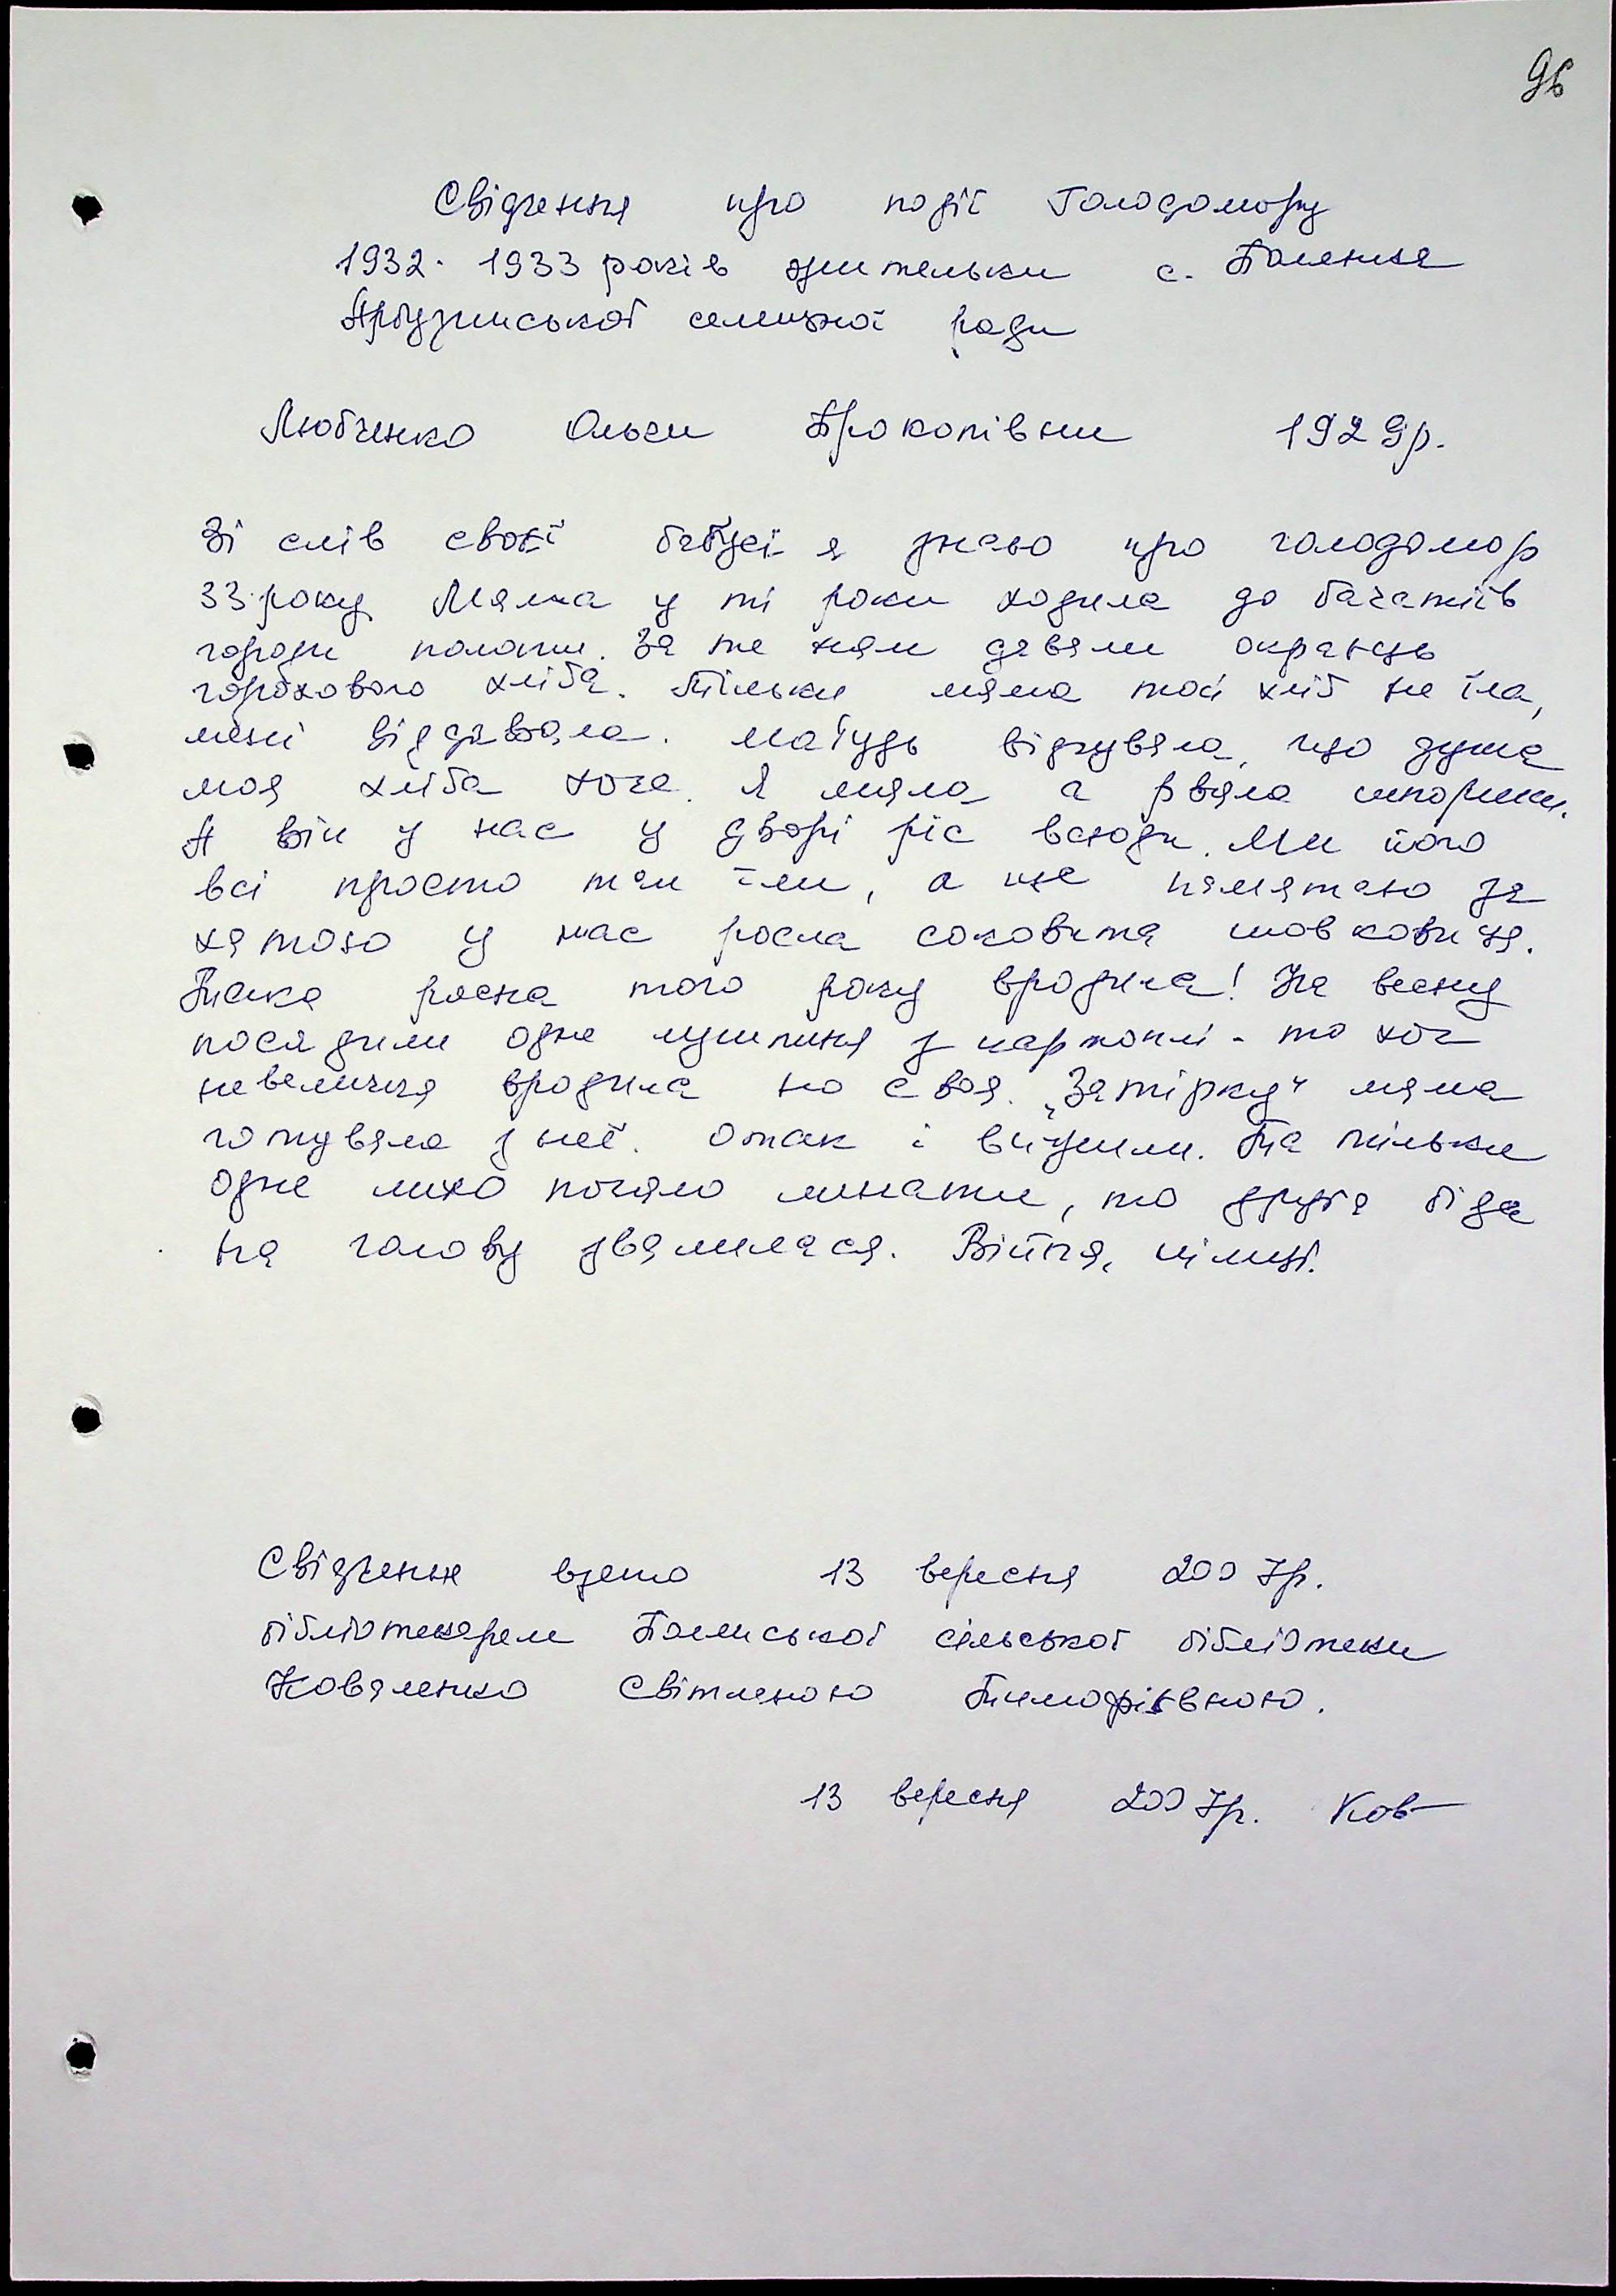 96
Свідчення про події Голодомору
1932-1933 років жительки с. Полянка
Арбузинської селищної ради
Любченко Ольги Прокопівни 1929р.
Зі слів своєї бабусі я знаю про голодомор
33 року. Мама у ті роки ходила до багатіїв
городи полоти. За те нам давали окраєць
горохового хліба. Тільки мама той хліб не їла,
мені віддавала. Мабудь відчувала, що душа
моя хліба хоче. А мама рвала шпориш.
А він у нас у дворі ріс всюди. Ми його
всі просто так їли, а ще памятаю за
хатою у нас росла соковита шовковиця.
Така рясна того року вродила! На весну
посадили одне лушпиння з картоплі - то хоч
невеличка вродила но своя. "Затірку" мама
готувала з неї. Отак і вижили. Та тільки
одне лихо почало минати, то друга біда
на голову звалилася. Війна, німці.
Свідчення взято 13 вересня 2007р.
бібліотекарем сільської бібліотеки
Коваленко Світланою Тимофіївною.
13 вересня 2007р. Ков